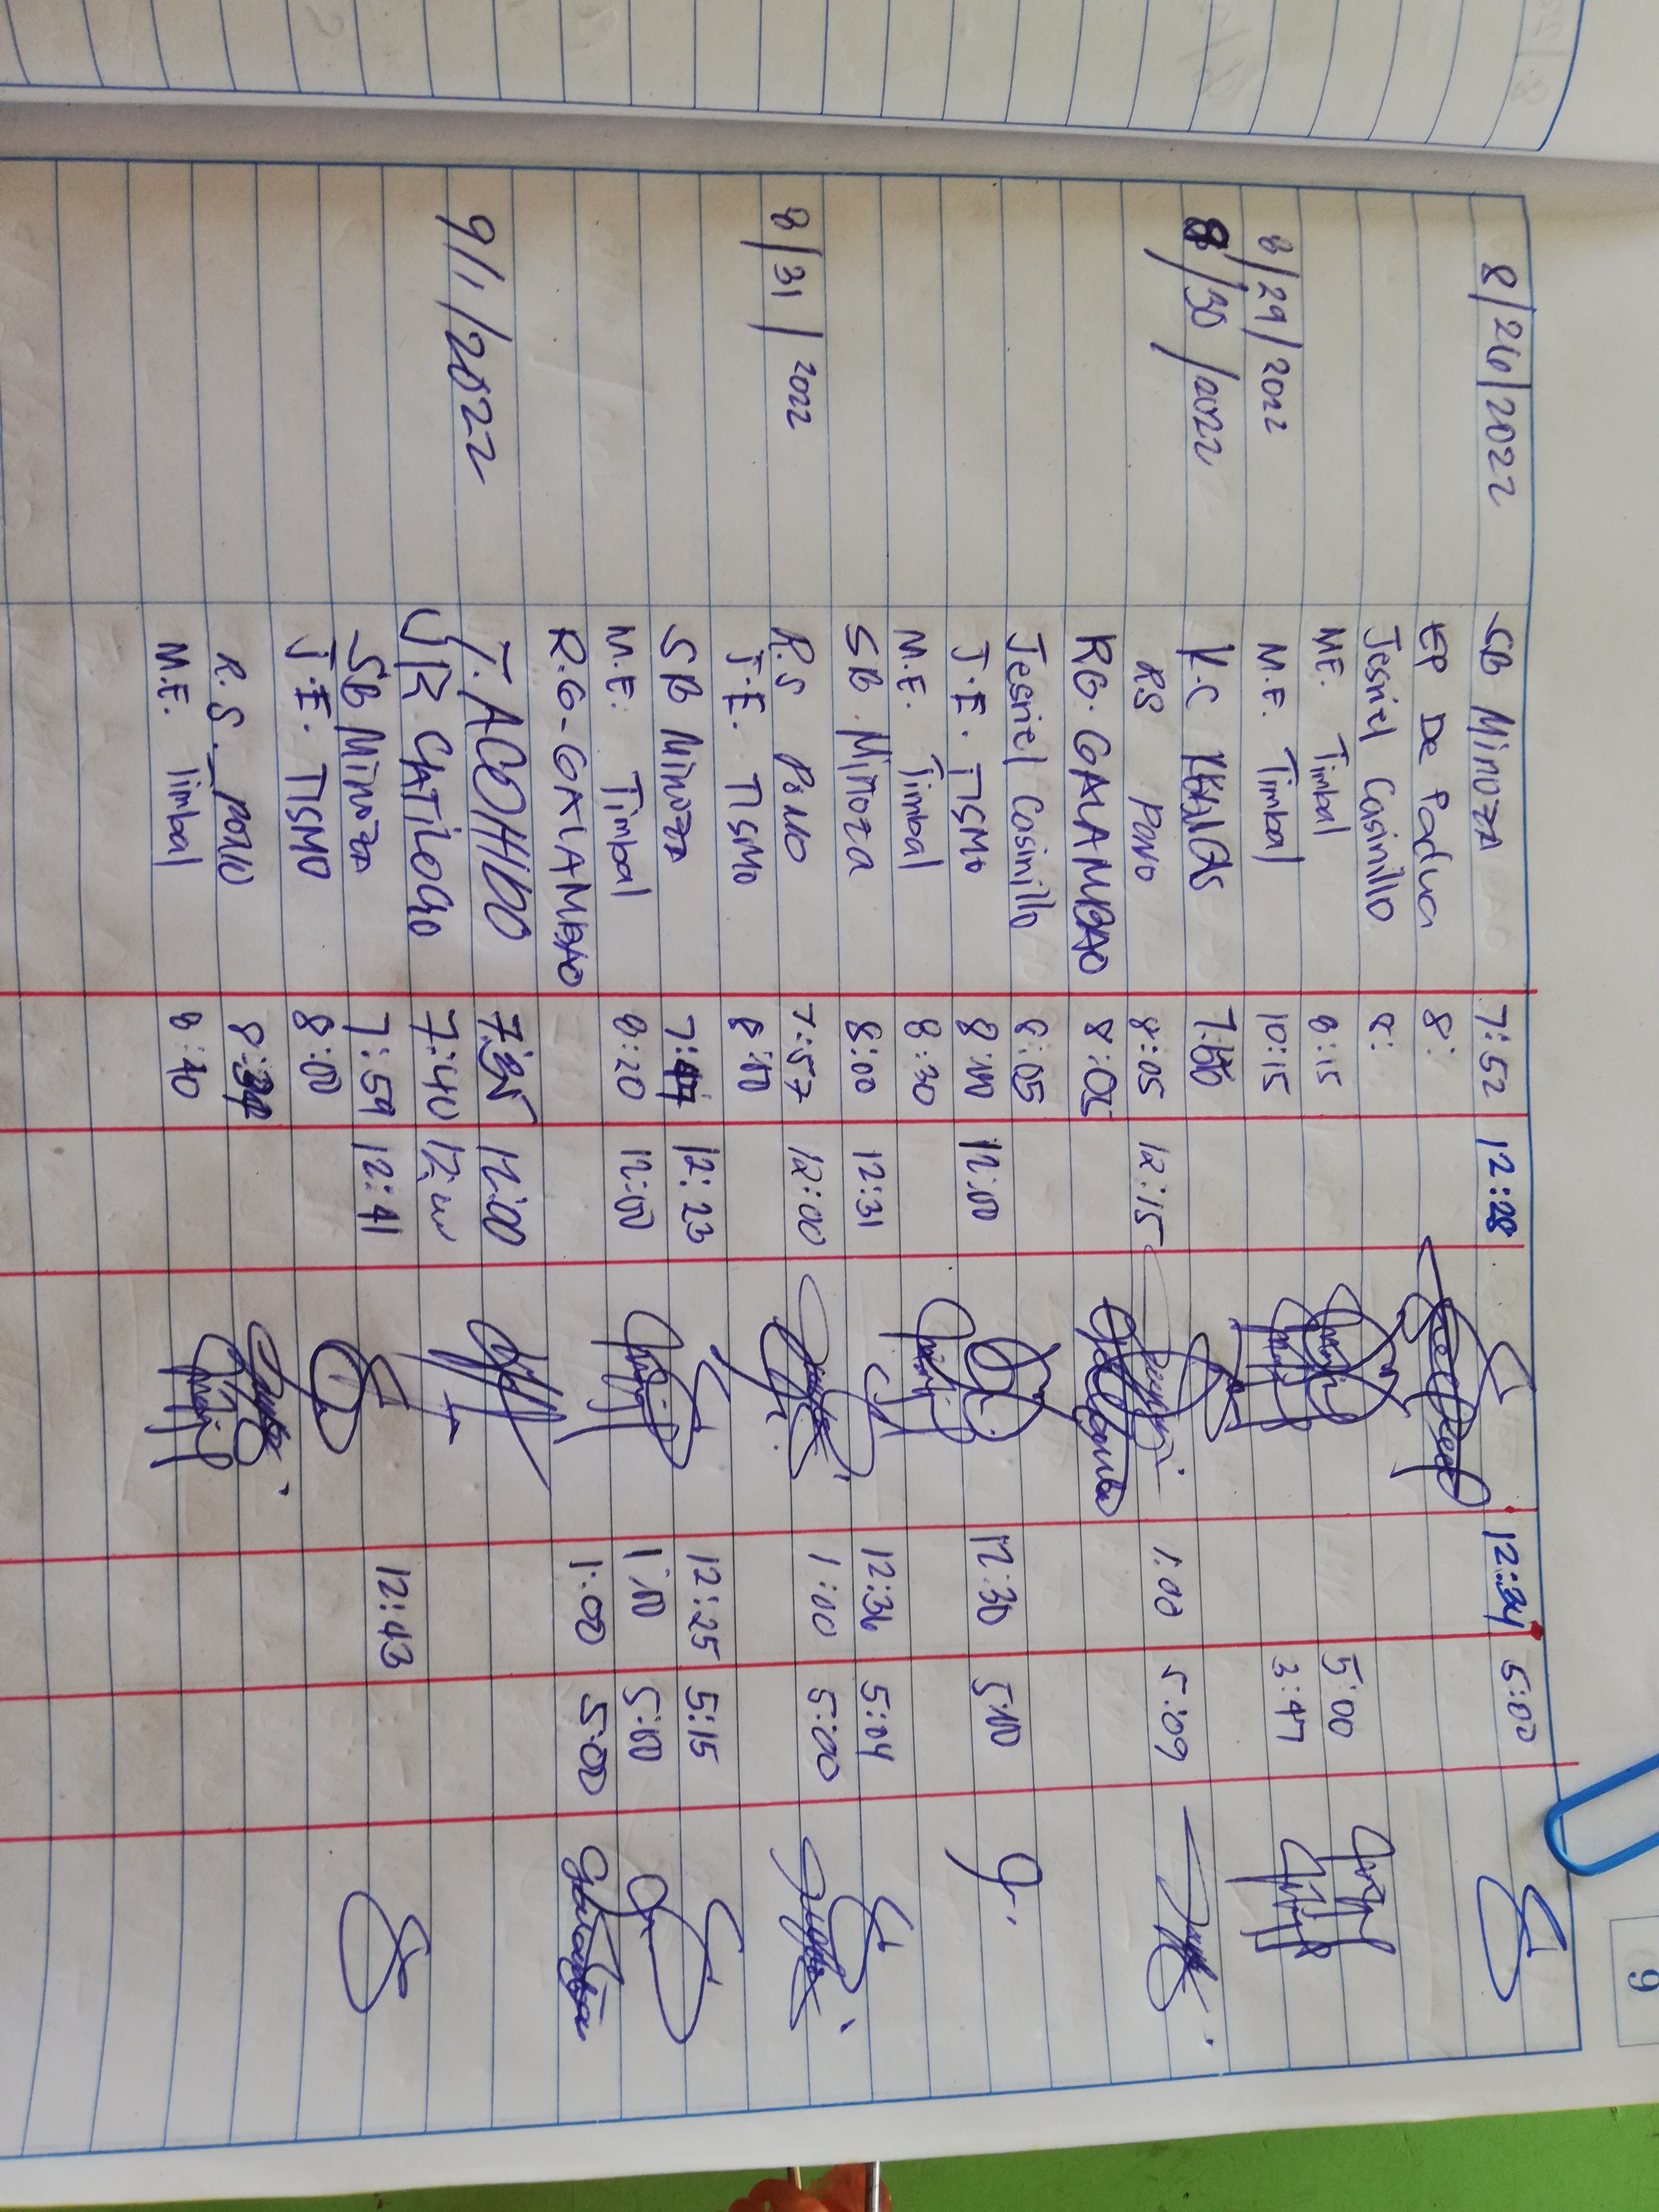 9
8/26/2022 SB Minoza 7:52 12:28 12:34 5:00
EP De Padua 8:
Jesriel Casinillo 8:
M.E. Timbal 8:15 5:00
8/29/2022 M.E. Timbal 10:15 3:47
8/30/2022 K.C
RS Pono 8:05 12:15 1:00 5:09
RG. GALAMBAO 8:05
Jesriel Casinillo 8:05
J.E. TISMO 8:00 12:00 12:30 5:00
M.E. Timbal 8:30
SB. Minoza 8:00 12:31 12:36 5:04
8/31/2022 R.S Pono 7:57 12:00 1:00 5:00
J.E. TISMO 8:00
SB Minoza 7:44 12:23 12:25 5:15
M.E. Timbal 8:20 12:00 1:00 5:00
R.G-GALAMBAO 1:00 5:00
9/1/2022 T. ACOHIDO 7:35 12:00
JR CATILOGO 7:40
SB Minoza 7:59 12:41 12:43
J.E. TISMO 8:00
R.S. PONO
M.E. Timbal 8:40